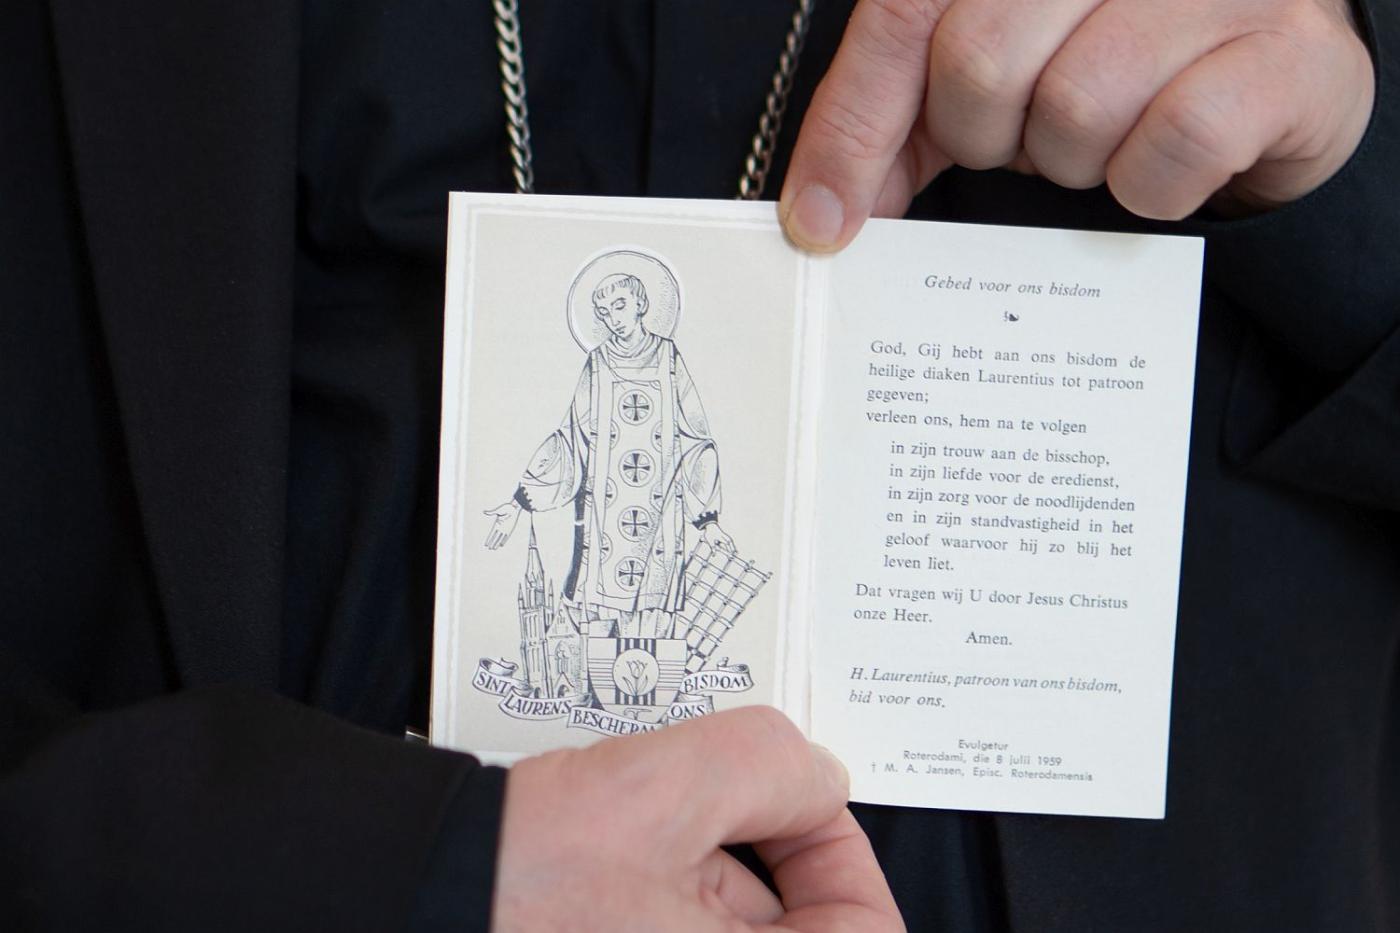 SINT
LAURENS
BESCHERM
ONS
BISDOM
Gebed voor ons bisdom
God, Gij hebt aan ons bisdom de
heilige diaken Laurentius tot patroon
gegeven;
verleen ons, hem na te volgen
in zijn trouw aan de bisschop,
in zijn liefde voor de eredienst,
in zijn zorg voor de noodlijdenden
en in zijn standvastigheid in het
geloof waarvoor hij zo blij het
leven liet.
Dat vragen wij U door Jesus Christus
onze Heer.
Amen.
H. Laurentius, patroon van ons bisdom,
bid voor ons.
Evulgetur
Roterodami, die 8 julii 1959
† M. A. Jansen, Episc. Roterodamensis